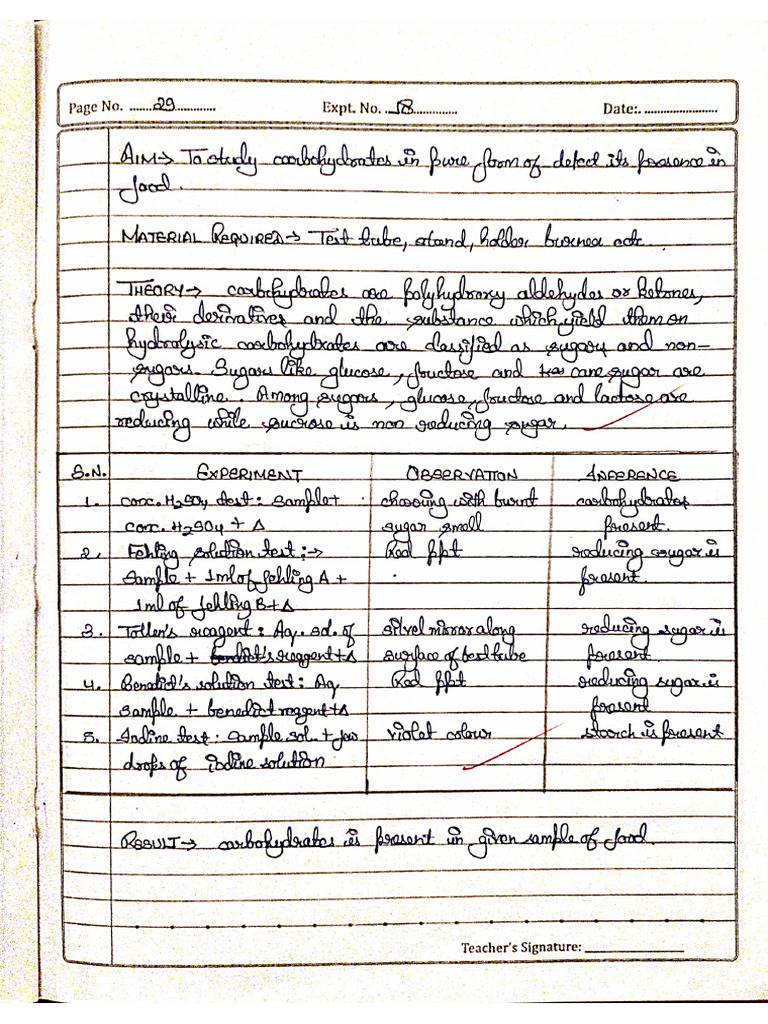 Page No. 29 Expt. No. 18 Date:
AIM → To study carbohydrates in pure form of detect its presence in
food.
MATERIAL REQUIRED → Test tube, stand, holder burner etc.
THEORY → carbohydrates are polyhydroxy aldehydes or ketones,
their derivatives and the substance which yield them on
hydrolysic carbohydrates are classified as sugars and non-
sugars. Sugars like glucose, fructose and cane sugar are
crystalline. Among sugars, glucose, fructose and lactose are
reducing while sucrose is non reducing sugar.
S.N. EXPERIMENT OBSERVATION INFERENCE
1. conc. H2SO4 test: Sample + charring with burnt carbohydrates
conc. H2SO4 + Δ sugar smell present.
2. Fehling solution test :→ Red ppt reducing sugar is
Sample + 1ml of fehling A + present.
1ml of fehling B + Δ
3. Tollen's reagent: Aq. sol. of silvel mirror along reducing sugar is
sample + benedict's reagent + Δ surface of test tube present.
4. Benedict's solution test: Aq Red ppt reducing sugar is
sample + benedict reagent + Δ present
5. Iodine test: Sample sol. + few violet colour starch is present
drops of iodine solution
RESULT → carbohydrates is present in given sample of food.
Teacher's Signature: